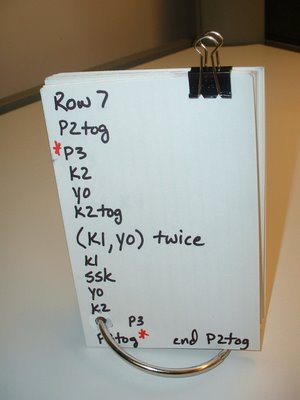 Row 7
P2tog
*P3
K2
yo
K2tog
(K1, yo) twice
K1
ssk
yo
K2
P3
P2tog* end P2tog